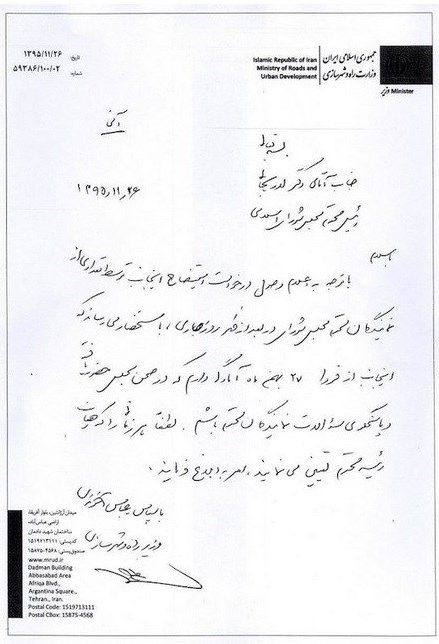 ۱۳۹۵/۱۱/۲۶
تاریخ:
۵۹۳۸۶/۱۰۰/۰۲
شماره:
Islamic Republic of Iran
Ministry of Roads and
Urban Development
جمهوری اسلامی ایران
وزارت راه و شهرسازی
وزیر Minister
آنی
بسمه تعالی
جناب آقای دکتر لاریجانی
۱۳۹۵،۱۱،۲۶
رئیس محترم مجلس شورای اسلامی
با سلام
با توجه به اعلام وصول درخواست استیضاح اینجانب توسط تعدادی از
نمایندگان محترم مجلس شورای در بعدازظهر روز جاری، به استحضار می رساند که
اینجانب از فردا ۲۷ بهمن ماه آمادگی دارم که در صحن مجلس حضور یافته
و پاسخگوی سوالات نمایندگان محترم باشم. لطفا هر زمان را که هیات
رئیسه محترم تعیین می نمایند، امر به ابلاغ فرمایند.
با سپاس عباس آخوندی
وزیر راه و شهرسازی
میدان آرژانتین، بلوار آفریقا
اراضی عباس‌آباد،
ساختمان شهید دادمان
کدپستی: ۱۵۱۹۷۱۳۱۱۱
صندوق‌پستی: ۴۵۶۸-۱۵۸۷۵
www.mrud.ir
Dadman Building
Abbasabad Area
Afriqa Blvd.,
Argantina Square.,
Tehran., Iran.
Postal Code: 1519713111
Postal CBox: 15875-4568